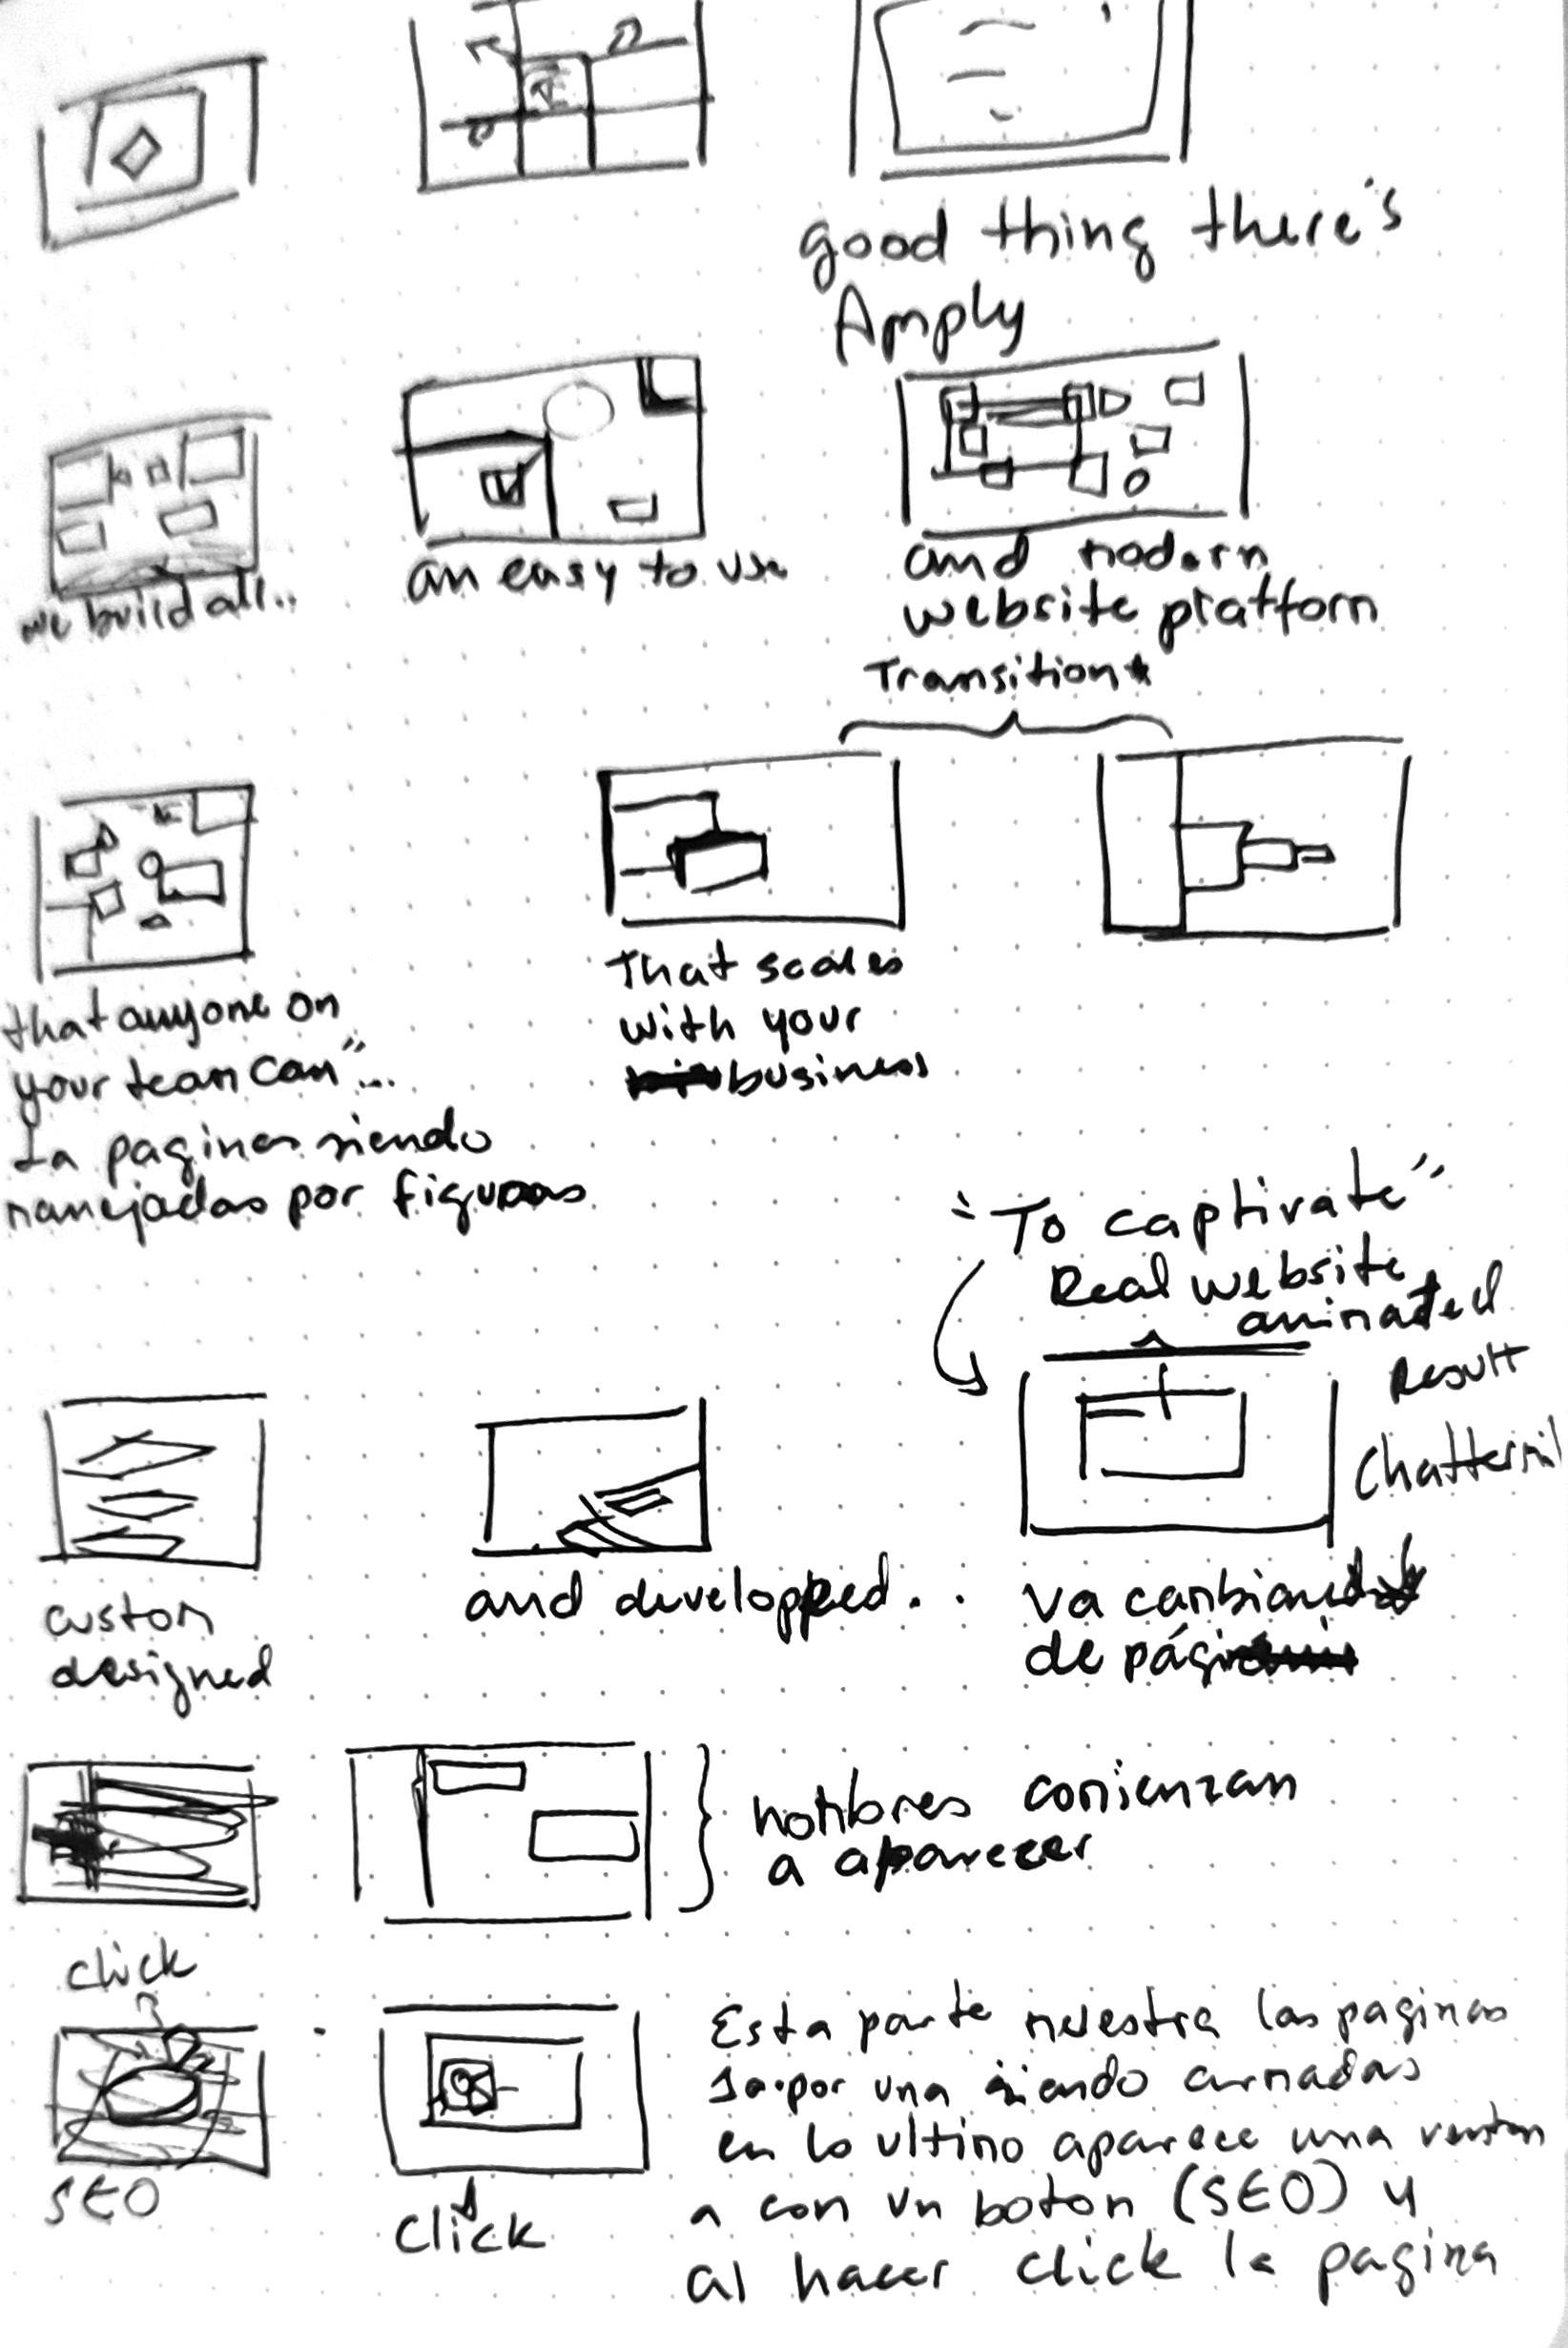 good thing there's
Amply
we build all..
an easy to use
and modern
website platform
Transition
that anyone on
your team can"...
La paginas siendo
manejadas por figuras
That scales
with your
business
"To captivate"
Real website
animated
Result
custom
designed
and developed...
va cambiando
de página
nombres comienzan
a aparecer
click
SEO
click
Esta parte muestra las paginas
por una siendo armadas
en lo ultimo aparece una
a con un boton (SEO) y
al hacer click la pagina